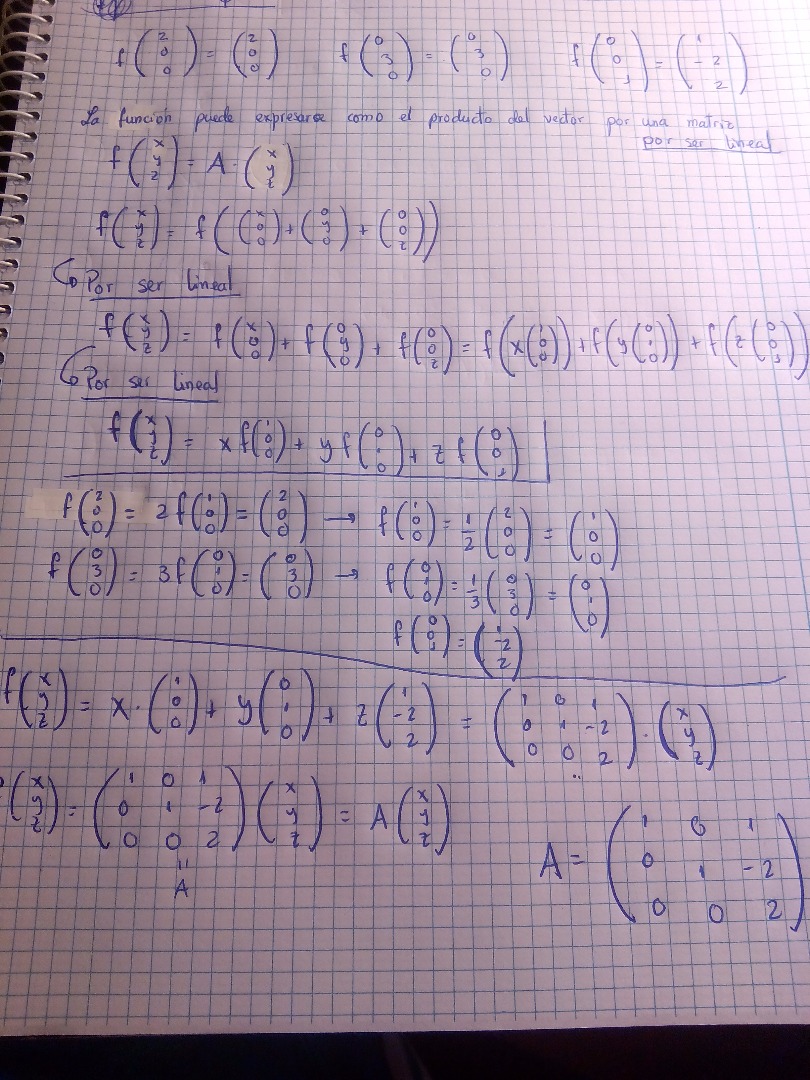 f(2 0 0) = (2 0 0) f(0 3 0) = (0 3 0) f(0 0 1) = (1 -2 2)
La función puede expresarse como el producto del vector por una matriz
por ser lineal
f(x y z) = A · (x y z)
f(x y z) = f((x 0 0) + (0 y 0) + (0 0 z))
Por ser lineal
f(x y z) = f(x 0 0) + f(0 y 0) + f(0 0 z) = f(x(1 0 0)) + f(y(0 1 0)) + f(z(0 0 1))
Por ser lineal
f(x y z) = x f(1 0 0) + y f(0 1 0) + z f(0 0 1)
f(2 0 0) = 2f(1 0 0) = (2 0 0) → f(1 0 0) = 1/2 (2 0 0) = (1 0 0)
f(0 3 0) = 3f(0 1 0) = (0 3 0) → f(0 1 0) = 1/3 (0 3 0) = (0 1 0)
f(0 0 1) = (1 -2 2)
f(x y z) = x · (1 0 0) + y (0 1 0) + z (1 -2 2) = (1 0 1 0 1 -2 0 0 2) · (x y z)
(x y z) = (1 0 1 0 1 -2 0 0 2) (x y z) = A (x y z)
"
A
A = (1 0 1 0 1 -2 0 0 2)